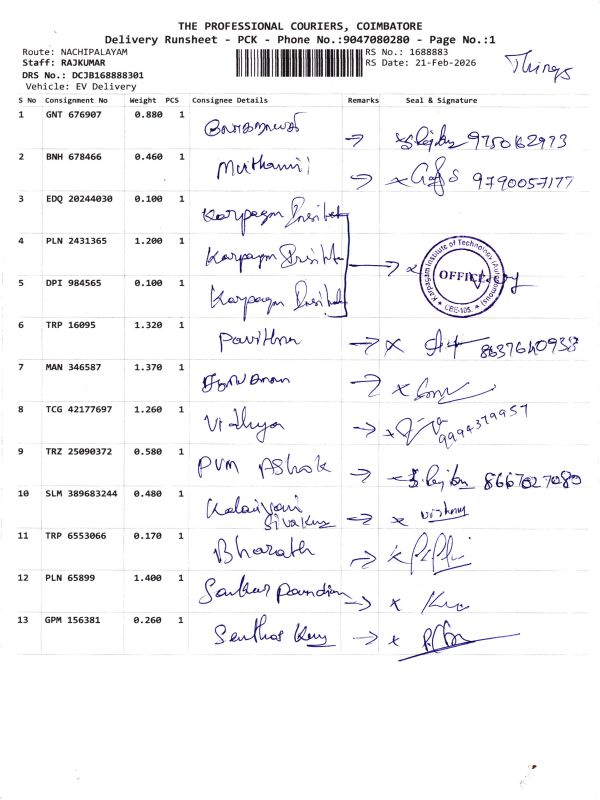 THE PROFESSIONAL COURIERS, COIMBATORE
Delivery Runsheet - PCK - Phone No.:9047080280 - Page No.:1
Route: NACHIPALAYAM
RS No.: 1688883
Staff: RAJKUMAR
RS Date: 21-Feb-2026
Things
DRS No.: DCJB168888301
Vehicle: EV Delivery
S No Consignment No Weight PCS Consignee Details Remarks Seal & Signature
1 GNT 676907 0.880 1
9750162973
2 BNH 678466 0.460 1
9790057177
3 EDQ 20244030 0.100 1 Karpagm
4 PLN 2431365 1.200 1 Karpagm
Karpagam Institute of Technology (Autonomous)
OFFICE
CBE-105.
5 DPI 984565 0.100 1 Karpagm
6 TRP 16095 1.320 1 Pavithra
7 MAN 346587 1.370 1
8 TCG 42177697 1.260 1 Vidhya
9994379957
9 TRZ 25090372 0.580 1 PVM Ashok
8667027080
10 SLM 389683244 0.480 1 Kalaivani
11 TRP 6553066 0.170 1 Bharath
12 PLN 65899 1.400 1 Sankar Pandian
13 GPM 156381 0.260 1